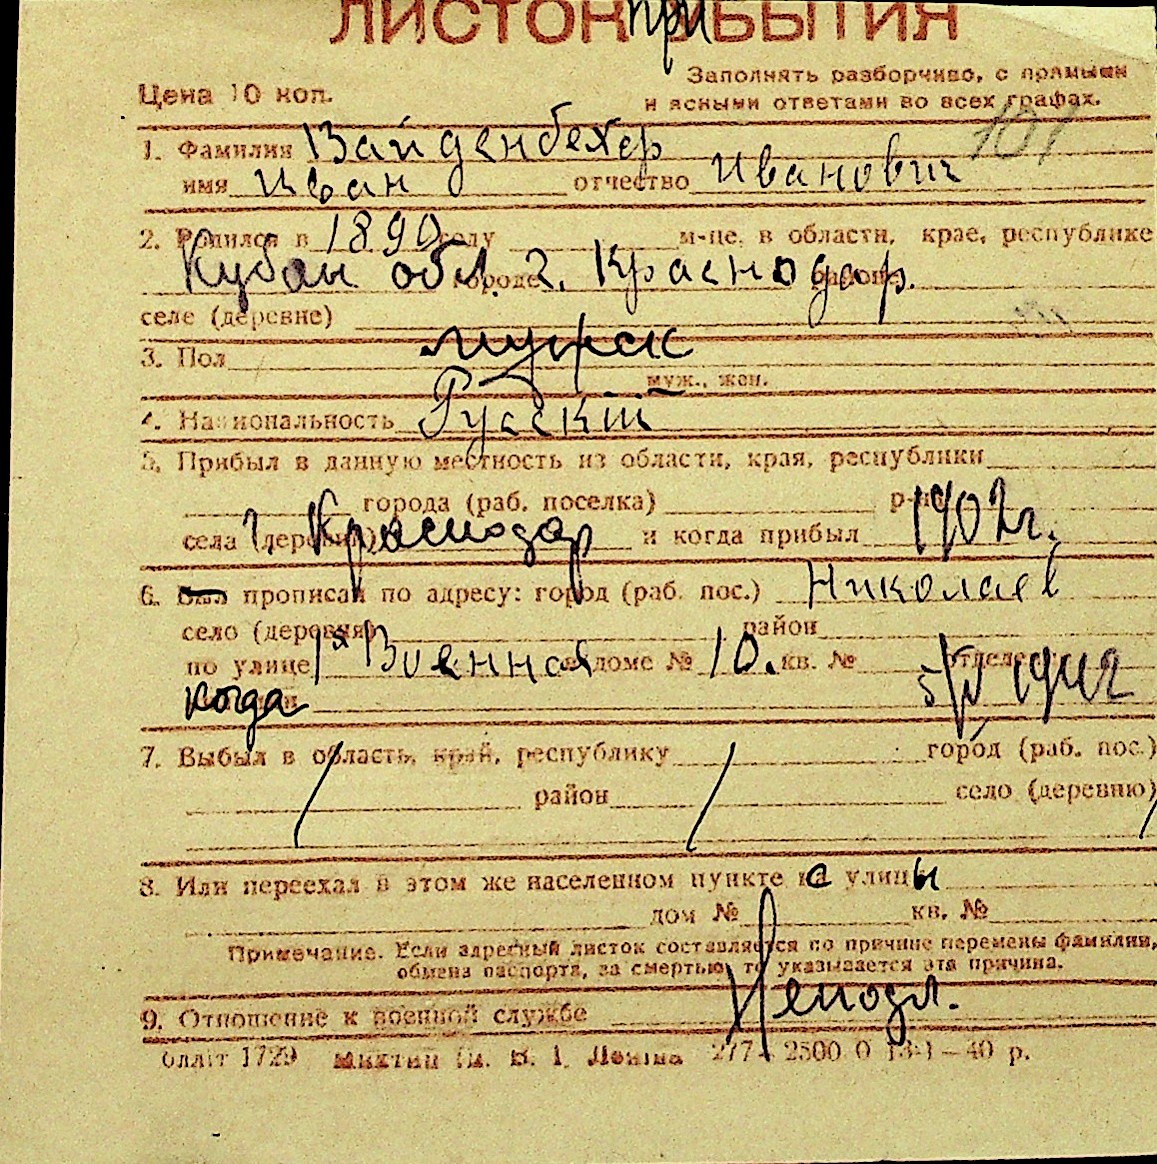 ЛИСТОК ПРИБЫТИЯ
Цена 10 коп.
Заполнять разборчиво, с прямыми
и ясными ответами во всех графах.
101
1. Фамилия Вайденбехер
имя Иван отчество Иванович
2. Родился в 1890 году м-це, в области, крае, республике
Кубан обл. городе г. Краснодар. районе
селе (деревне)
3. Пол мужск
муж., жен.
4. Национальность Русский
5. Прибыл в данную местность из области, края, республики
города (раб. поселка) р-на
села (деревни) г. Краснодар и когда прибыл 1902 г.
6. Был прописан по адресу: город (раб. пос.) Николаев
село (деревня) район
по улице 1я Военная в доме № 10. кв. № отделен.
когда 5/V 1942
7. Выбыл в область, край, республику город (раб. пос.)
район село (деревню)
8. Или переехал в этом же населенном пункте с улицы
дом № кв. №
Примечание. Если адресный листок составляется по причине перемены фамилии,
обмена паспорта, за смертью, то указывается эта причина.
9. Отношение к военной службе Неподл.
1729 Ленина 277—2500 0 —40 р.